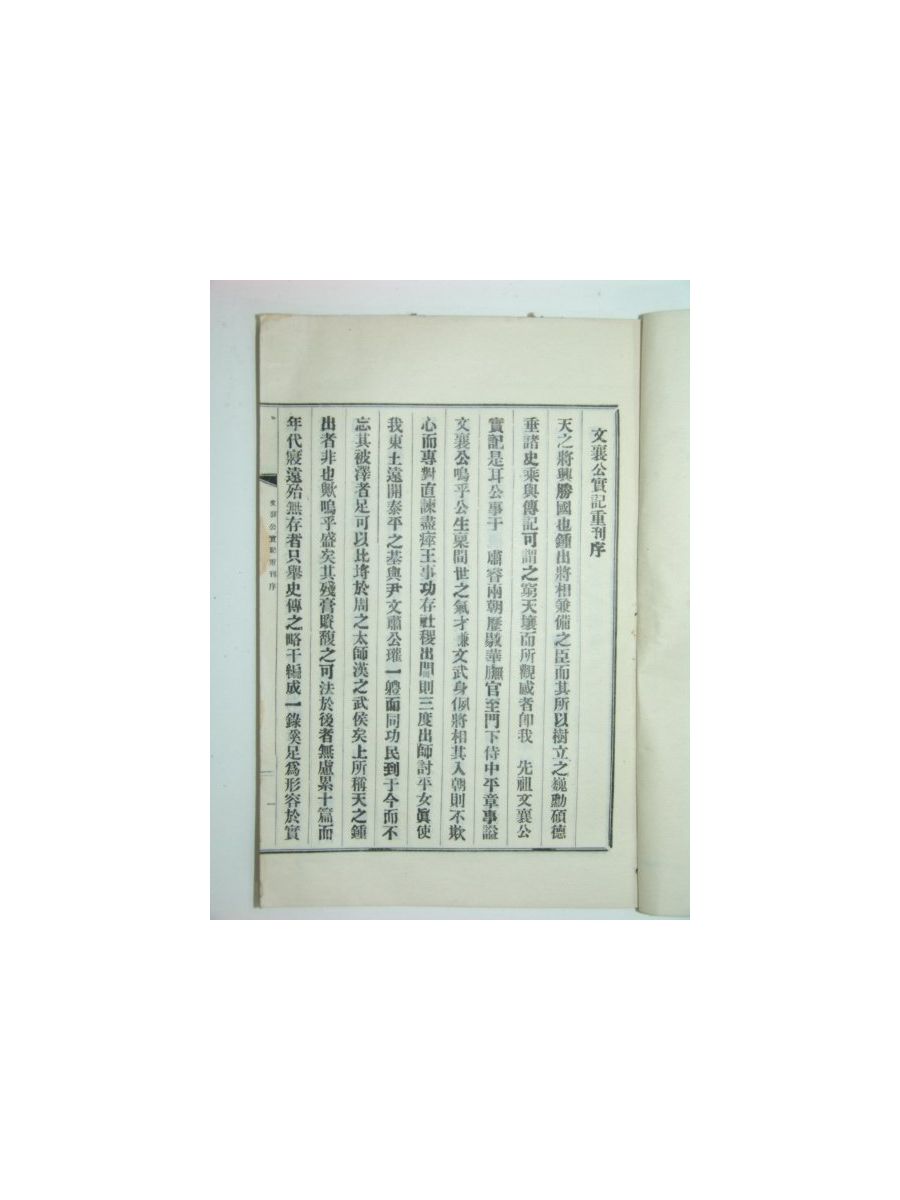 文襄公實記重刊序
天之將興勝國也鍾出將相兼備之臣而其所以樹立之巍勳碩德
垂諸史乘與傳記可謂之窮天壤而所觀感者卽我 先祖文襄公
實記是耳公事于 肅睿兩朝歷敭華膴官至門下侍中平章事諡
文襄公嗚乎公生稟間世之氣才兼文武身佩將相其入朝則不欺
心而專對直諫盡瘁王事功存社稷出閫則三度出師討平女眞使
我東土遠開泰平之基與尹文肅公瓘一軆而同功民到于今而不
忘其被澤者足可以比埓於周之太師漢之武侯矣上所稱天之鍾
出者非也歟嗚乎盛矣其殘膏賸馥之可法於後者無慮累十篇而
年代寖遠殆無存者只擧史傳之略干編成一錄奚足爲形容於實
文襄公實記重刊序
一